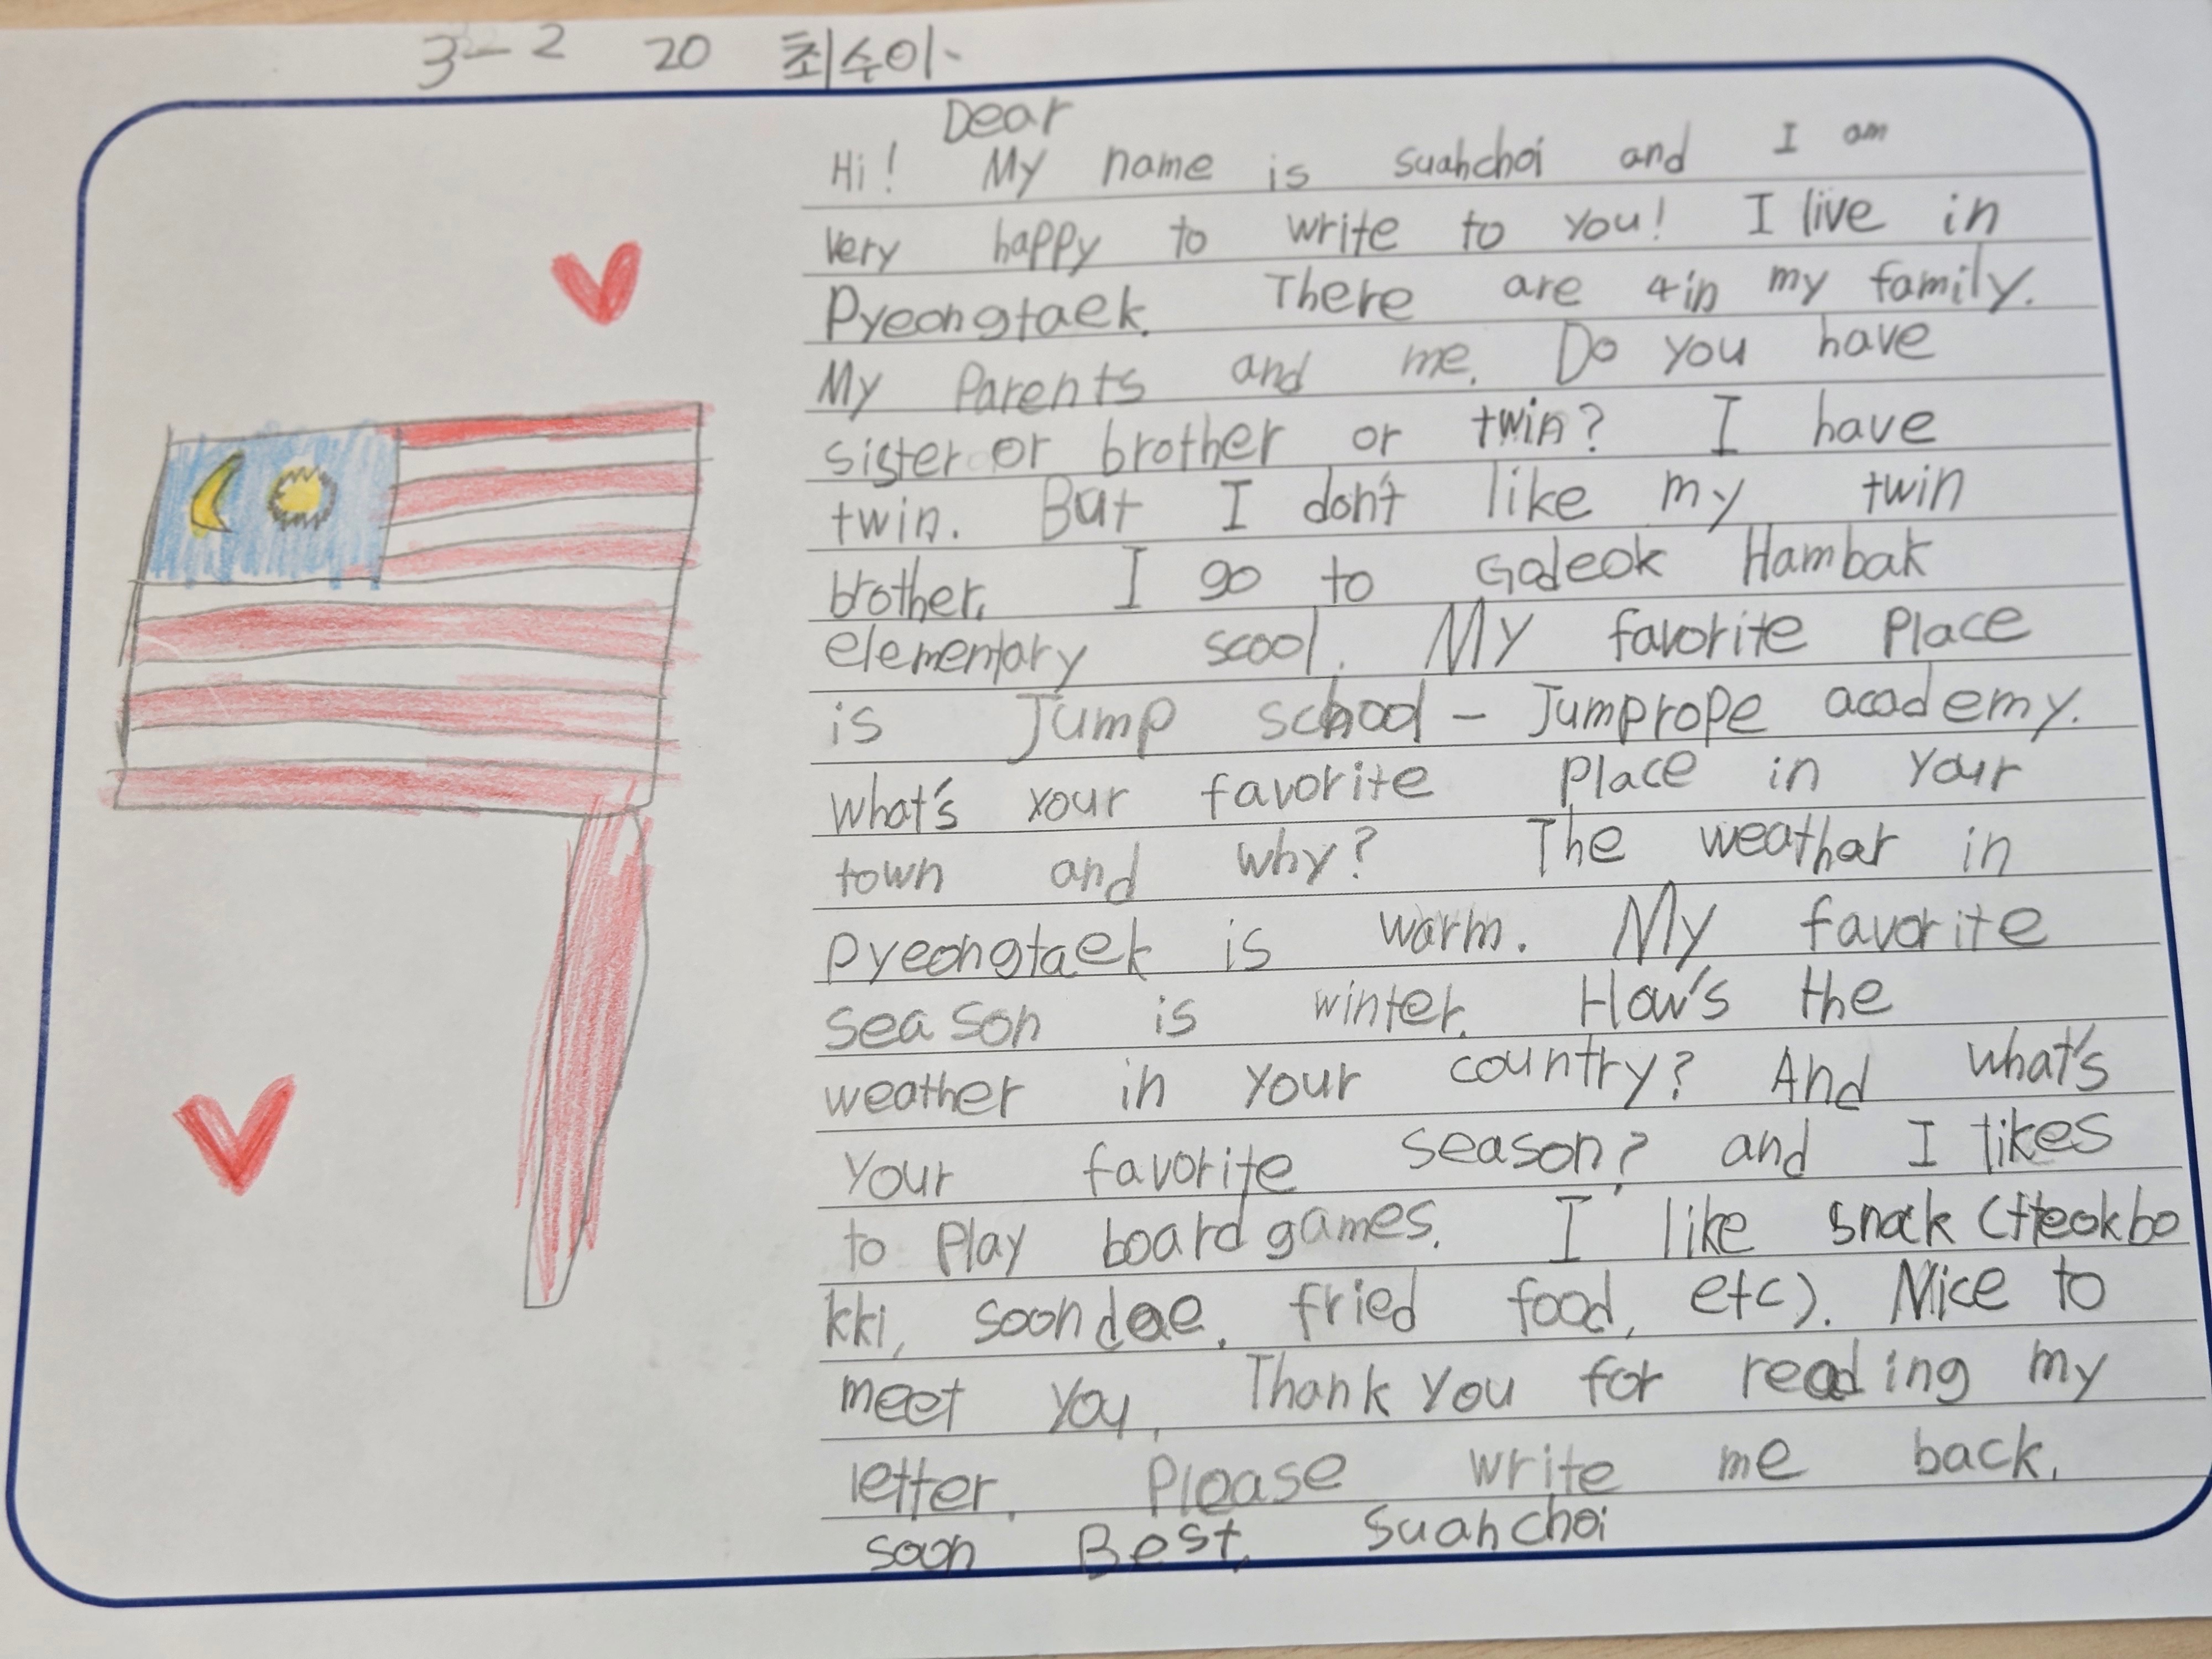 3-2 20 최수아
Dear
Hi! My name is suahchoi and I am
very happy to write to you! I live in
Pyeongtaek. There are 4in my family.
My Parents and me. Do you have
sister or brother or twin? I have
twin. But I don't like my twin
brother. I go to Godeok Hambak
elementary scool. My favorite place
is Jump school - Jumprope academy.
what's your favorite place in your
town and why? The weathar in
pyeongtaek is warm. My favorite
season is winter. How's the
weather in your country? And what's
your favorite season? and I likes
to play board games. I like snack (tteokbo
kki, soondae, fried food, etc). Nice to
meet you, Thank you for reading my
letter. Please write me back.
soon Best, Suahchoi